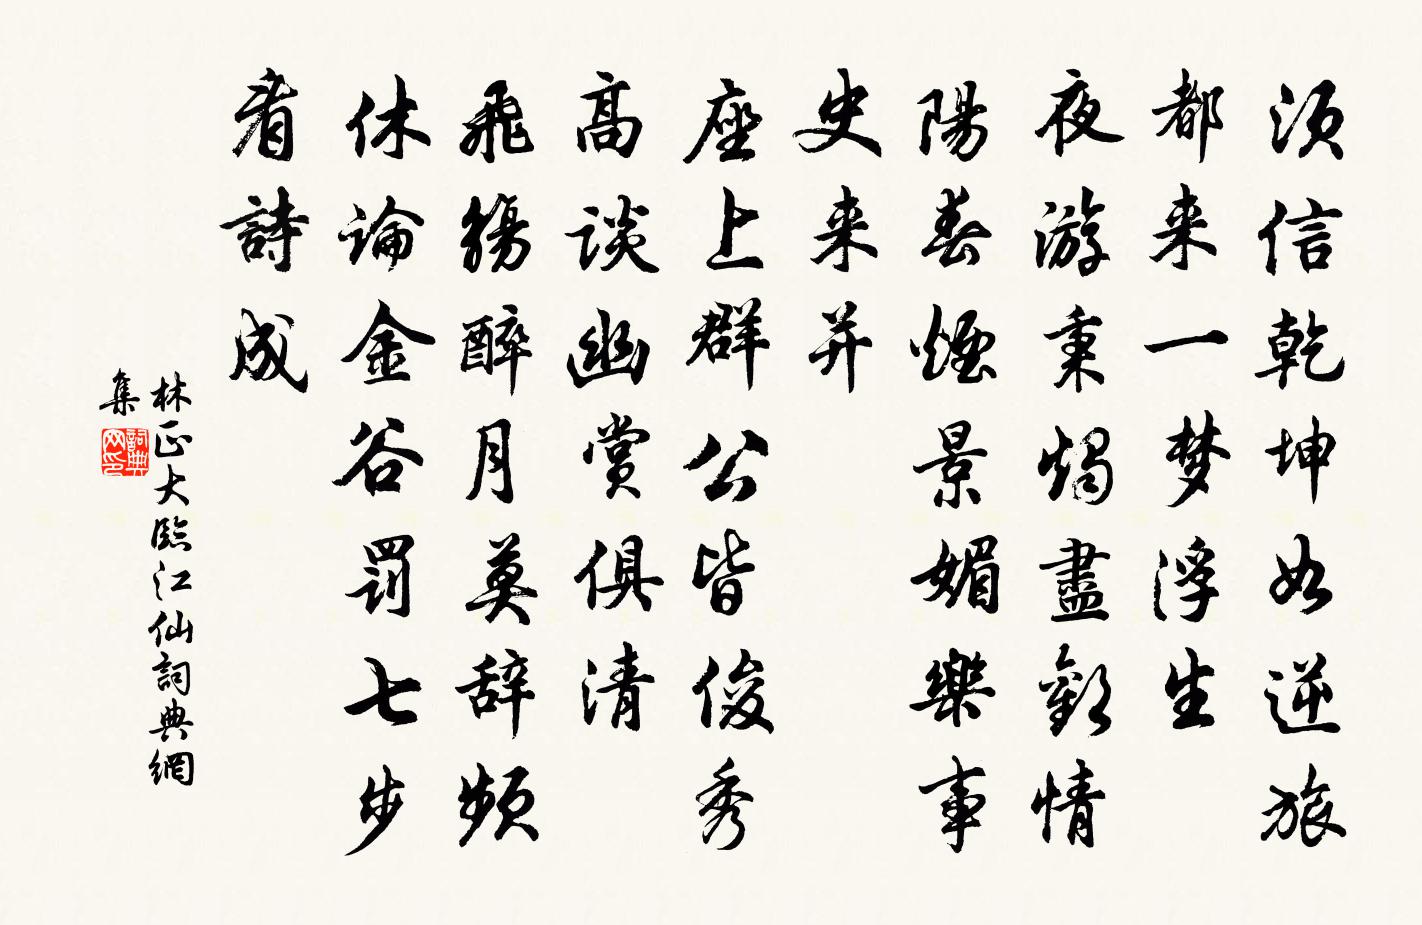 须信乾坤如逆旅
都来一梦浮生
夜游秉烛尽欢情
陽春煙景媚樂事
史来并
座上群公皆俊秀
高谈幽赏俱清
飛觴醉月莫辞频
休论金谷罰七步
看詩成
林正大臨江仙詞典網
集
詞典网印